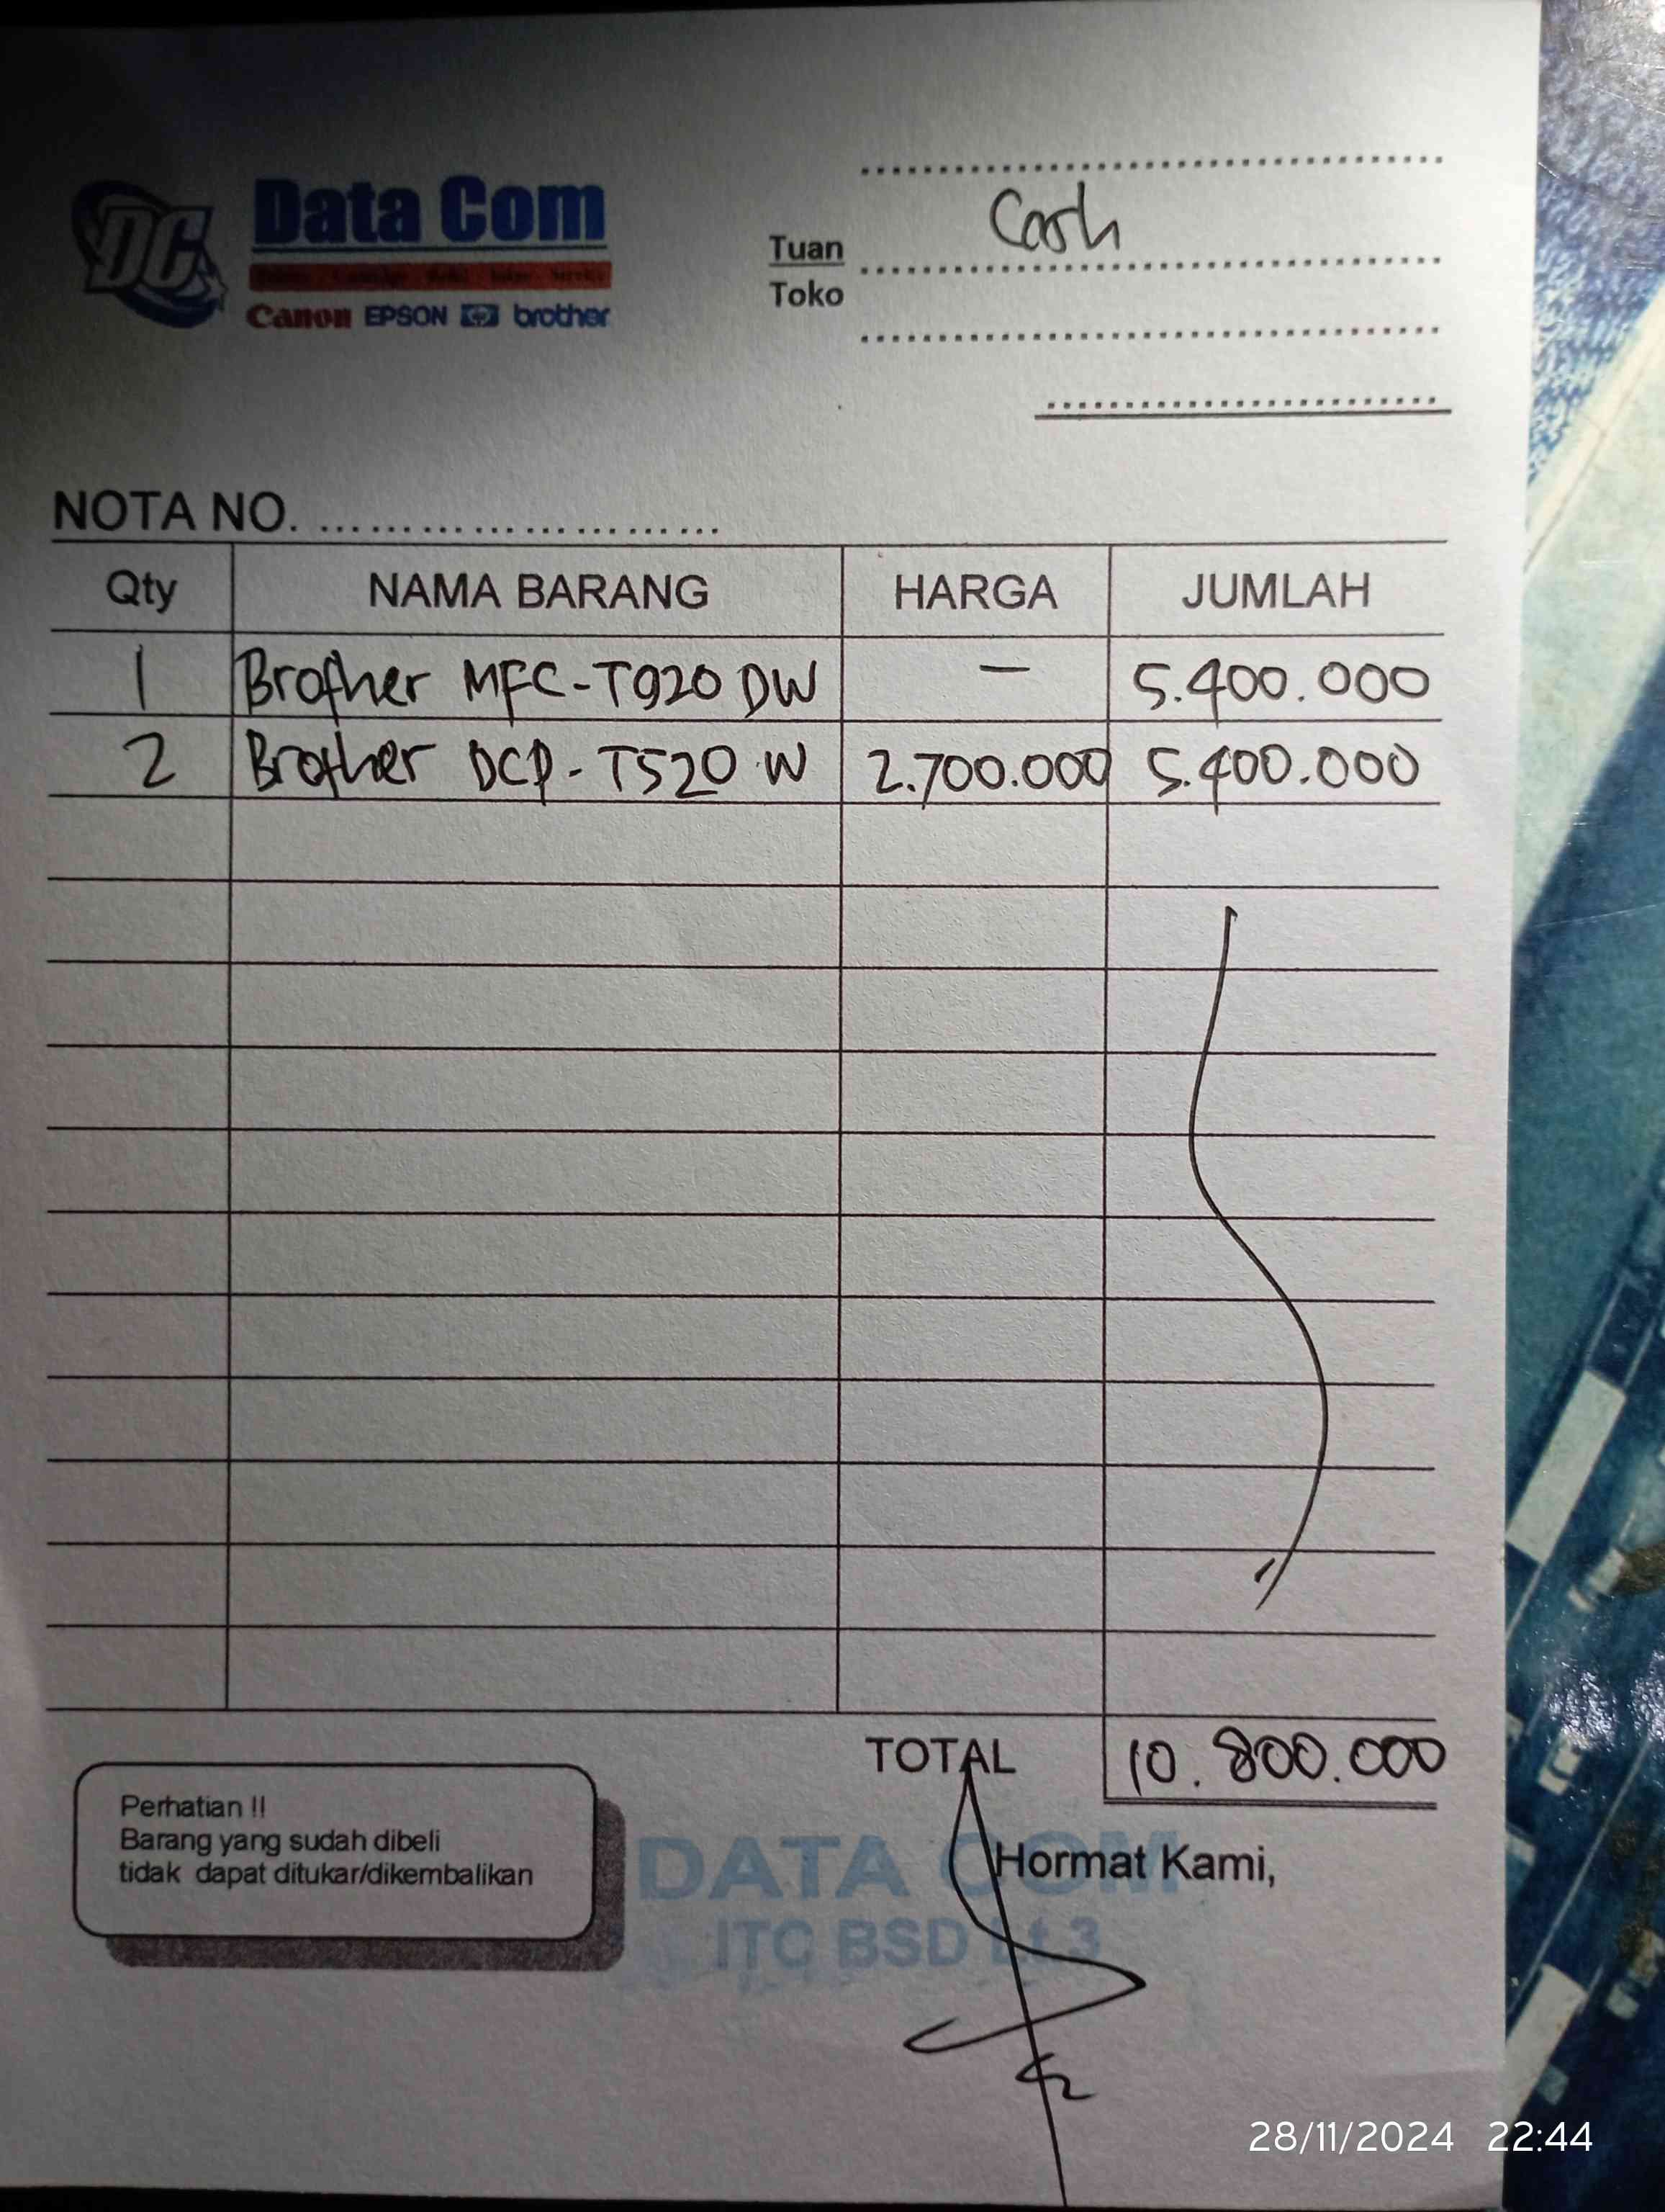 DC
Data Com
Canon EPSON hp brother
Cash
Tuan
Toko
NOTA NO. ..............................
Qty NAMA BARANG HARGA JUMLAH
1 Brother MFC-T920 DW — 5.400.000
2 Brother DCP-T520 W 2.700.000 5.400.000
TOTAL 10.800.000
Perhatian !!
Barang yang sudah dibeli
tidak dapat ditukar/dikembalikan
Hormat Kami,
DATA COM
ITC BSD Lt 3
28/11/2024 22:44